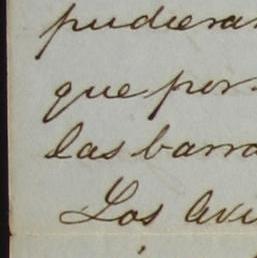 pudieran
que por
las barra
Los avi